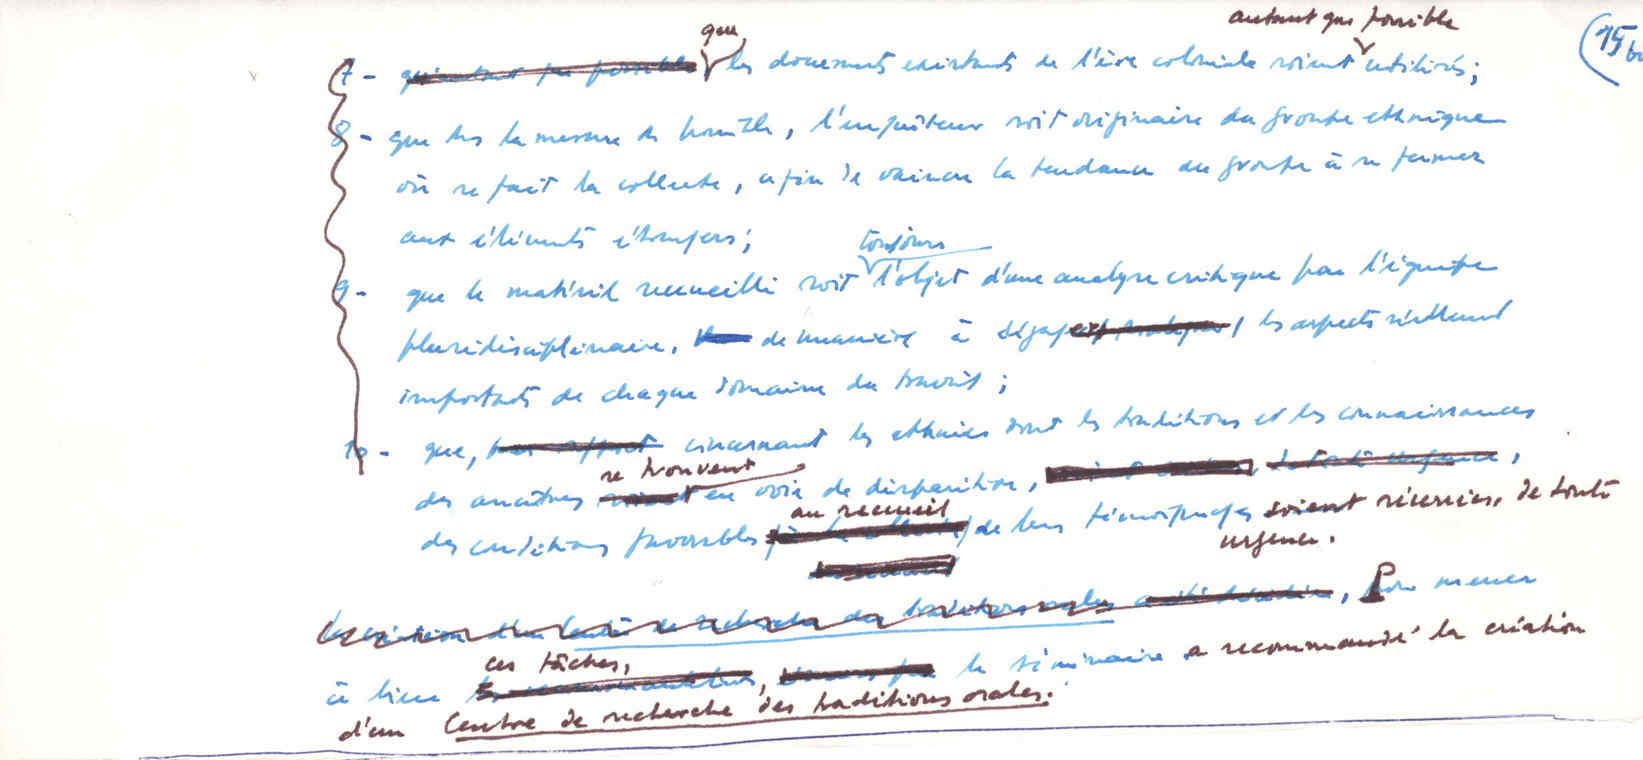 autant que possible
que
15 bis
7 - les documents existants de l'ère coloniale soient utilisés ;
8 - que ds la mesure du possible, l'enquêteur soit originaire du groupe ethnique
où se fait la collecte, afin de vaincre la tendance du groupe à se fermer
aux éléments étrangers ;
toujours
9 - que le matériel recueilli soit l'objet d'une analyse critique par l'équipe
pluridisciplinaire, de manière à dégager les aspects réellement
importants de chaque domaine du travail ;
10 - que, concernant les ethnies dont les traditions et les connaissances
se trouvent
des ancêtres en voie de disparition,
au recueil
des conditions favorables de leurs témoignages soient réservées, de toute
urgence.
La création d'un Centre de recherche des traditions orales, Pour mener
ces tâches,
à bien le séminaire a recommandé la création
d'un Centre de recherche des traditions orales.